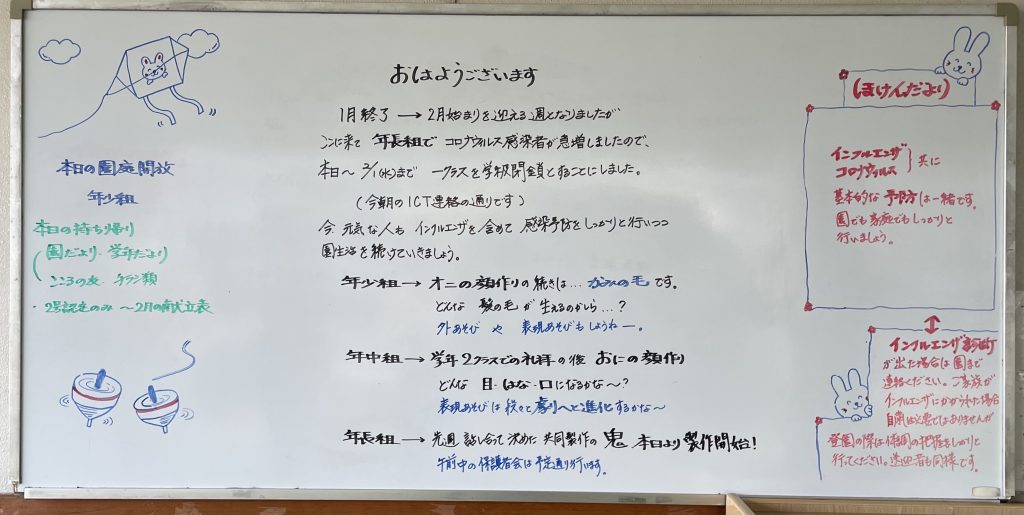 おはようございます
1月終了 → 2月始まりを迎える週となりましたが
ここに来て 年長組で コロナウイルス感染者が急増しましたので、
本日〜 2/1(水)まで 一クラスを学級閉鎖とすることにしました。
(今朝のICT連絡の通りです)
今 元気な人も インフルエンザを含めて 感染予防をしっかりと行いつつ
園生活を続けていきましょう。
年少組 → オニの顔作りの続きは… かみの毛です。
どんな 髪の毛が 生えるのかしら…?
外あそび や 表現あそびもしようねー。
年中組 → 学年2クラスでの礼拝の後 おにの顔作り
どんな 目・はな・口になるかな〜?
表現あそびは 段々と劇へと進化するかな〜
年長組 → 先週 話し合って決めた 共同製作の 鬼 本日より製作開始!
午前中の保護者会は予定通り行います。
本日の園庭開放
年少組
本日の持ち帰り
園だより・学年だより
こころの友・チラシ類
・2号認定のみ 〜2月の献立表
ほけんだより
インフルエンザ
コロナウイルス } 共に
基本的な 予防は一緒です。
園でも家庭でもしっかりと
行いましょう。
インフルエンザ診断
が出た場合は園まで
連絡ください。ご家族が
インフルエンザにかかられた場合
自粛は必要ではありませんが
登園の際は体調の把握をしっかりと
行ってください。送迎者も同様です。